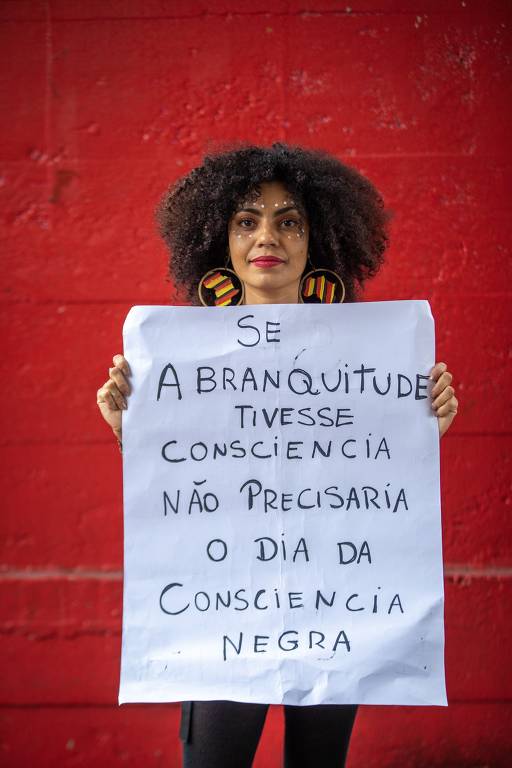 SE
A BRANQUITUDE
TIVESSE
CONSCIENCIA
NÃO PRECISARIA
O DIA DA
CONSCIENCIA
NEGRA